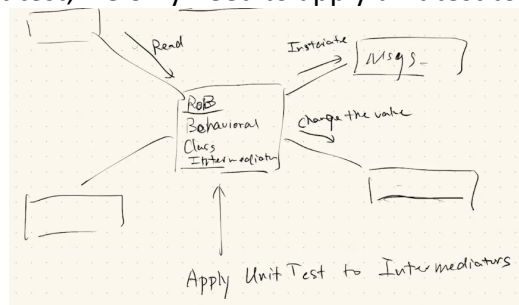 Read
Insteiate
Msgs-
RoB
Behavioral
Class
Intermediator
Change the value
Apply Unit Test to Intermediators